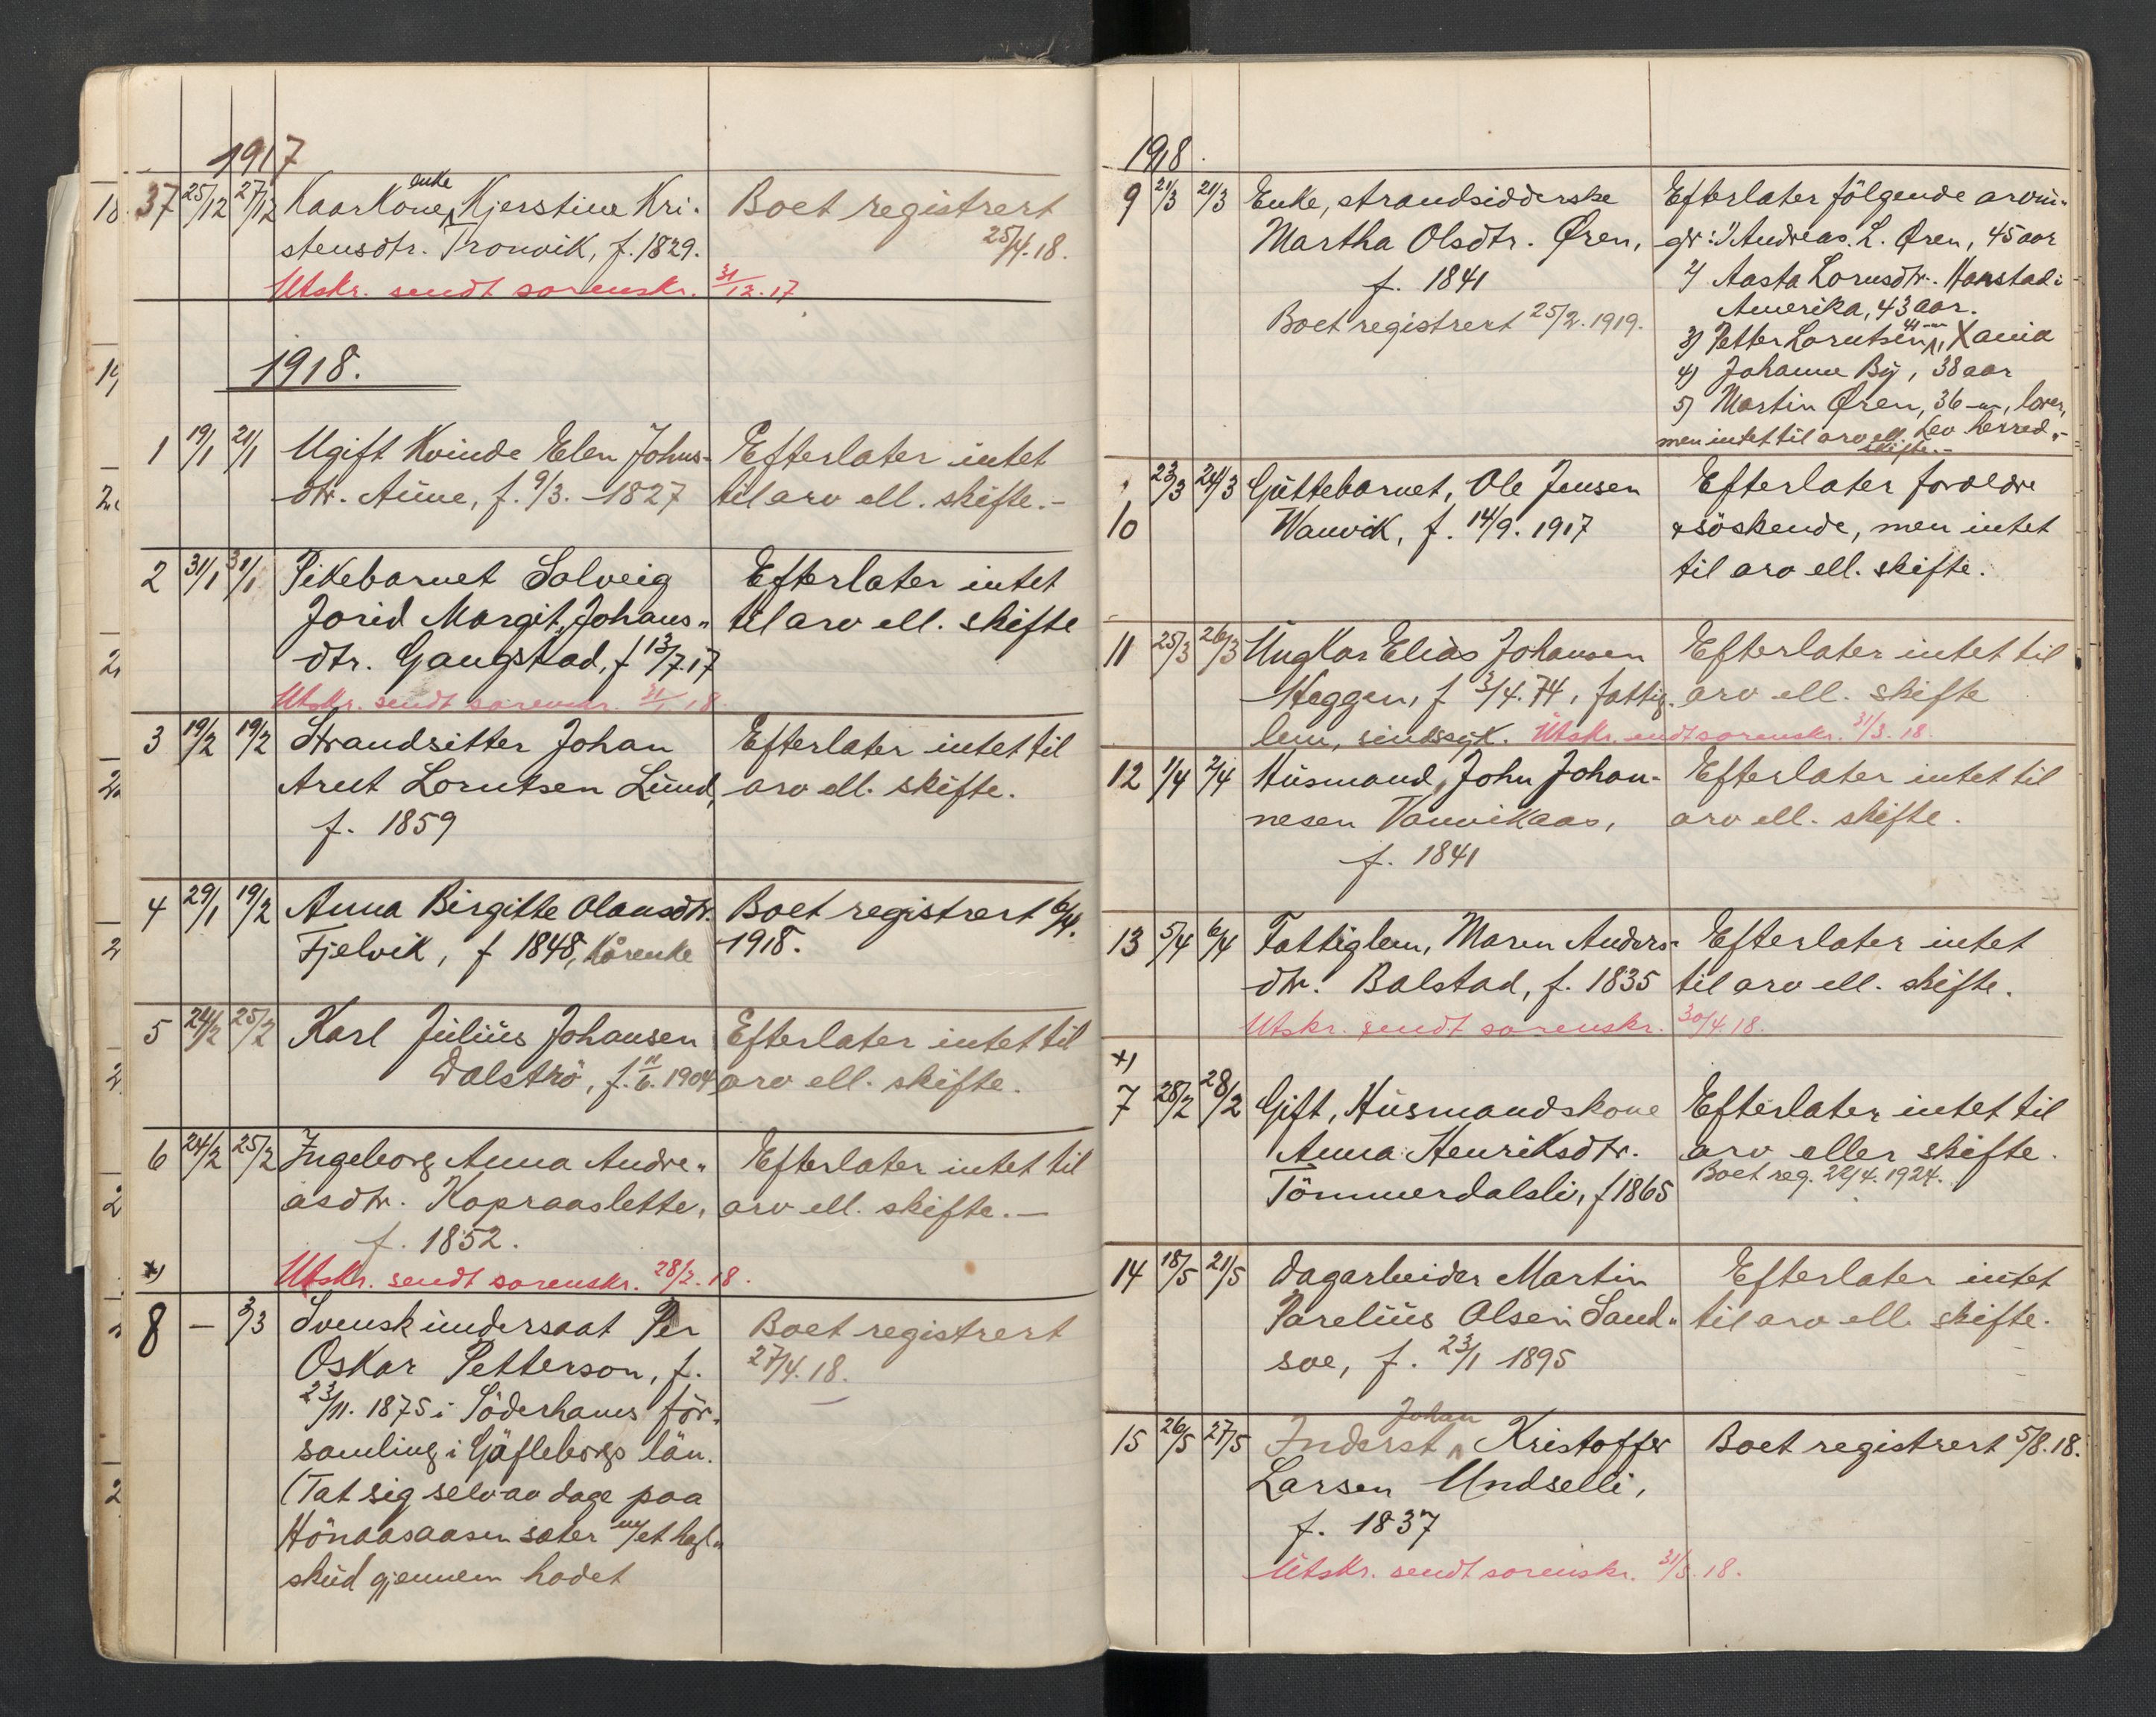 1917
37 25/12 27/12 Kaarkone, enke Kjerstine Kri- Boet registrert
stensdtr. Tronvik, f. 1829. 25/4.18.
Utskr. sendt sorenskr. 31/12.17
1918.
1 19/1 21/1 Ugift Kvinde Elen Johns- Efterlater intet
dtr. Aune, f. 9/3. -1827 til arv ell. skifte.-
2 31/1 31/1 Pikebarnet Solveig Efterlater intet
Jorid Margit Johans- til arv ell. skifte
dtr. Gangstad, f 13/7.17
Utskr. sendt sorenskr. 31/1 18.
3 19/2 19/2 Strandsitter Johan Efterlater intet til
Arnt Lorntsen Lund, arv ell. skifte.
f. 1859
4 29/1 19/2 Anna Birgitte Olausdtr. Boet registrert 6/4.
Fjelvik, f 1848, kårenke 1918.
5 24/2 25/2 Karl Julius Johansen Efterlater intet til
Dalströ, f. 11/6. 1904 arv ell. skifte.
6 24/2 25/2 Ingeborg Anna Andre- Efterlater intet til
asdtr. Kopraaslette, arv ell. skifte.-
f. 1852.
x) Utskr. sendt sorenskr. 28/2.18.
8 - 3/3 Svensk undersaat Per Boet registrert
Oskar Petterson, f. 27/4.18.
23/11. 1875 i Söderhams för-
samling i Gäfleborgs län.
(Tat sig selv av dage paa
Hönaasaasen sæter m/et hagl-
skud gjennem hodet
1918.
9 21/3 21/3 Enke, strandsidderske Efterlater följende arvin-
Martha Olsdtr. Øren, gr: 1) Andreas L. Øren, 45 aar
f. 1841 2) Aasta Lornsdtr. Hanstad i
Amerika, 43 aar.
Boet registrert 25/2.1919.
3) Petter Lorntsen, 41
4) Johanne By, 38 aar
5) Martin Øren, 36 -"-,
men intet til arv ell. skifte.- Lev herred
10 23/3 24/3 Guttebarnet, Ole Jensen Efterlater forældre
Wanvik, f. 14/9. 1917 & söskende, men intet
til arv ell. skifte.
11 25/3 26/3 Ungkar Elias Johansen Efterlater intet til
Heggen, f 3/4.74, fattig- arv ell. skifte
lem, sindssyk. Utskr. sendt sorenskr. 31/3.18.
12 1/4 2/4 Husmand, John Johan- Efterlater intet til
nesen Vanvikaas, arv ell. skifte.
f. 1841
13 5/4 6/4 Fattiglem, Maren Anders- Efterlater intet
dtr. Balstad, f. 1835 til arv ell. skifte.
Utskr. sendt sorenskr. 30/4.18.
x)
7 28/2 28/2 Gift, Husmandskone Efterlater intet til
Anna Henriksdtr. arv eller skifte.
Tömmerdalsli, f 1865 Boet reg. 22/4.1924.
14 18/5 21/5 Dagarbeider Martin Efterlater intet
Parelius Olsen Sand- til arv ell. skifte.
soe, f. 23/1 1895
15 26/5 27/5 Inderst Johan Kristoffer Boet registrert 5/8.18.
Larsen Undselli,
f. 1837
Utskr. sendt sorenskr. 31/5.18.